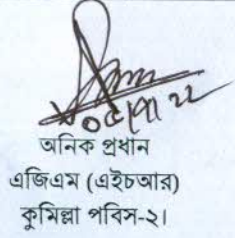 ০৫/০১/২২
অনিক প্রধান
এজিএম (এইচআর)
কুমিল্লা পবিস-২।